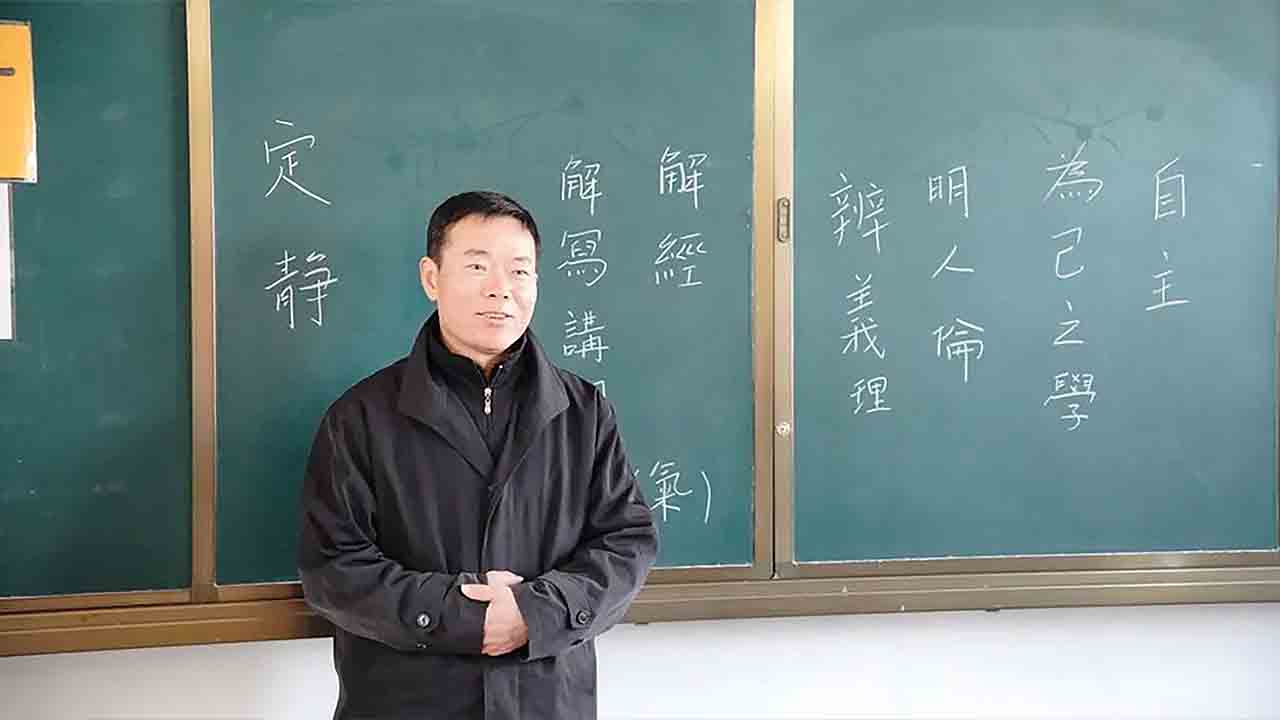 自主
為己之學
明人倫
辨義理
解經
解寫講
(氣)
定静